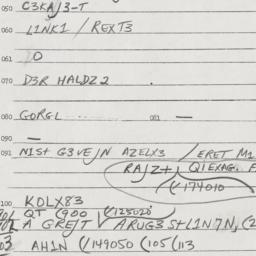 050 C3KAJ3-T
060 L1NK1 / REXT3
061 O
070 D3R HALDZ2 .
080 GORGL 081 —
090 —
091 N1St G3VEJN AZELX3 /ERET M1
RAJZ+, Q1EXAG.
174010
100 KOLX83
QT (900 (125020
A GREJT ARUG3S+L1N7N, (2
03 AH1N (149050 (105 (113